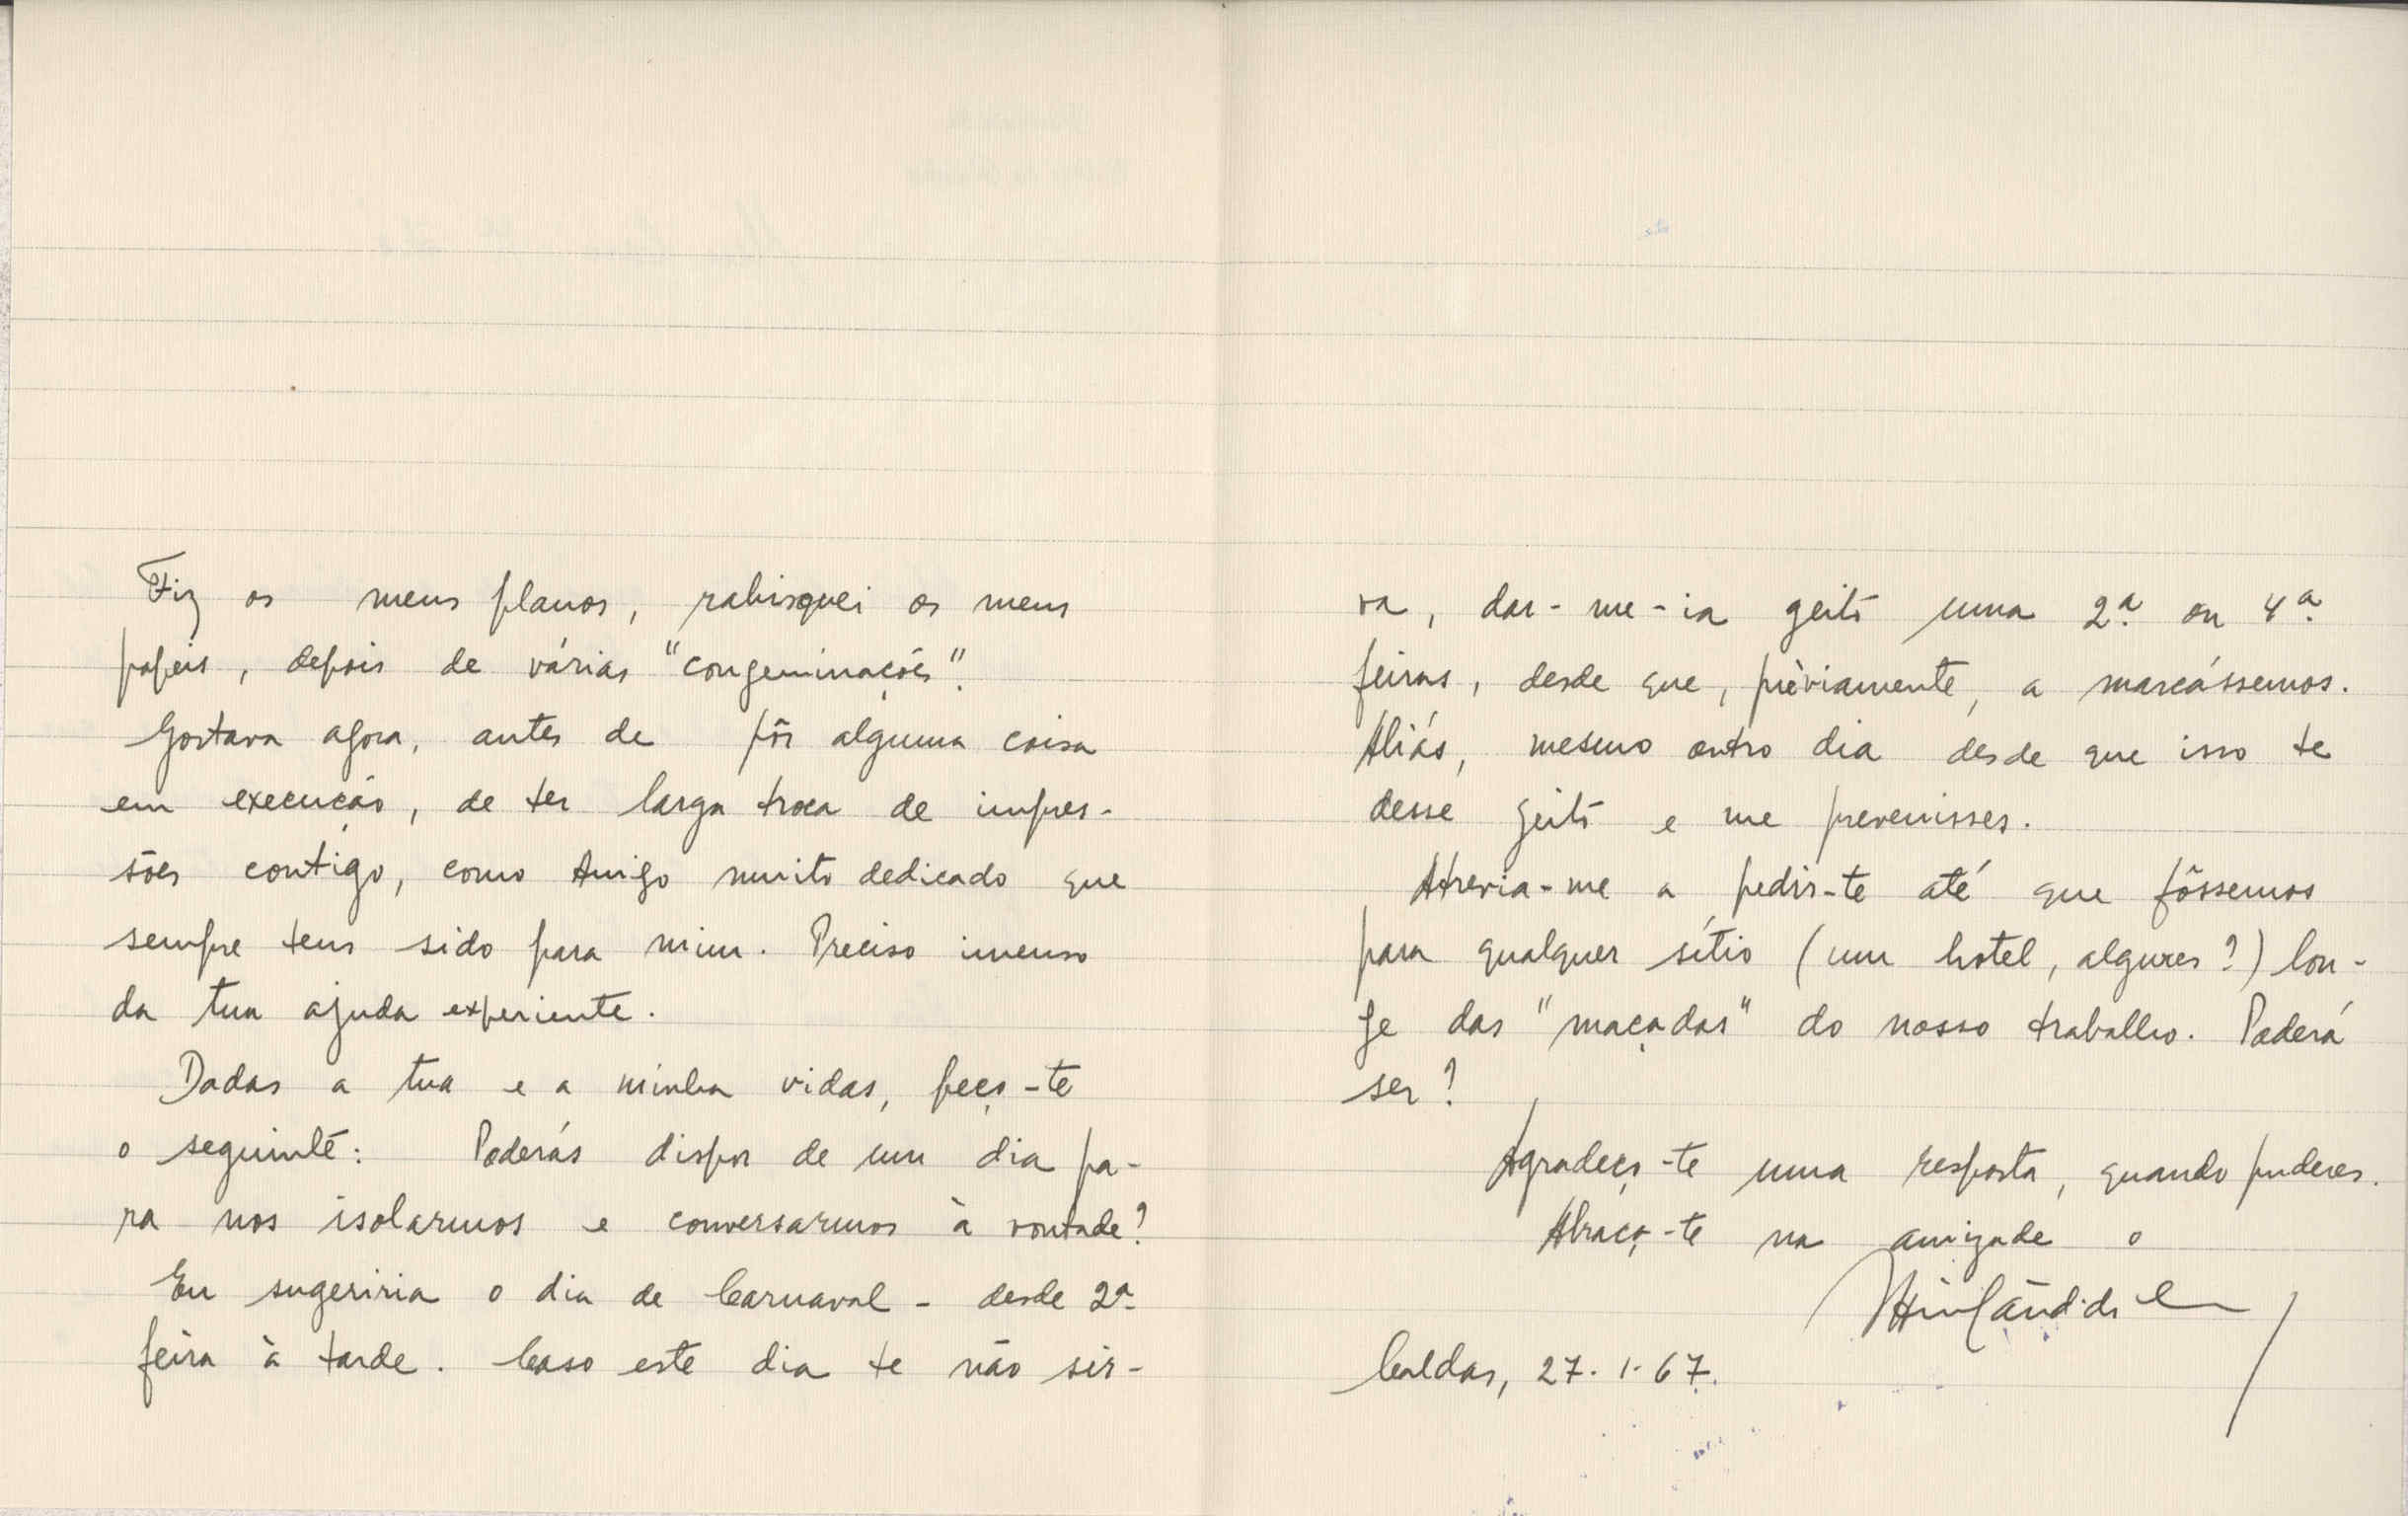 Fiz os meus planos, rabisquei os meus
papeis, depois de várias "congeminações".
Gostava agora, antes de pôr alguma coisa
em execução, de ter larga troca de impres-
sões contigo, como Amigo muito dedicado que
sempre tens sido para mim. Preciso imenso
da tua ajuda experiente.
Dadas a tua e a minha vidas, peço-te
o seguinte: Poderás dispor de um dia pa-
ra nos isolarmos e conversarmos à vontade?
Eu sugeriria o dia de Carnaval - desde 2ª
feira à tarde. Caso este dia te não sir-
va, dar-me-ia geito uma 2ª ou 4ª
feiras, desde que, prèviamente, a marcássemos.
Aliás, mesmo outro dia desde que isso te
desse geito e me prevenisses.
Atrevia-me a pedir-te até que fôssemos
para qualquer sítio (um hotel, algures?) lon-
ge das "maçadas" do nosso trabalho. Poderá
ser?
Agradeço-te uma resposta, quando puderes.
Abraça-te na amizade o
Caldas, 27.1.67.